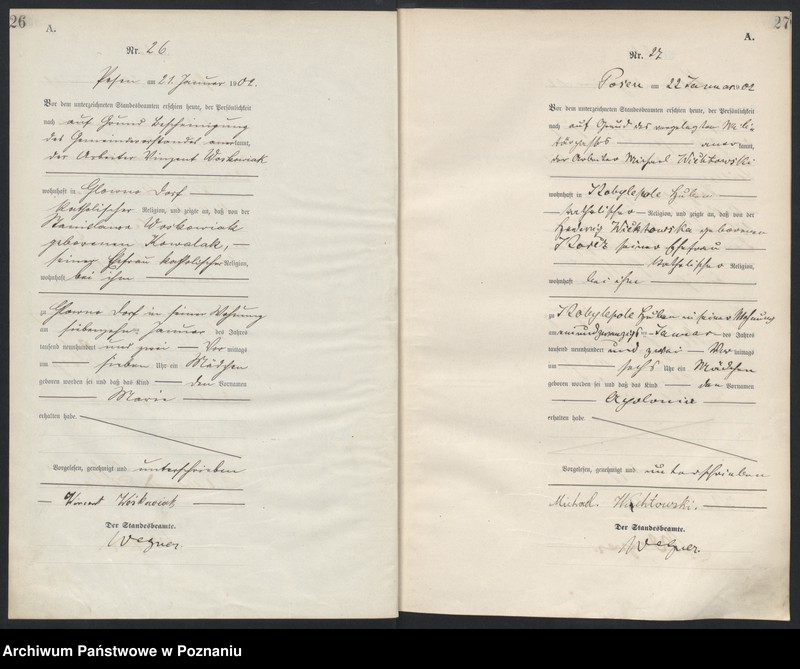 26
A.
Nr. 26
Posen am 21. Januar 1902.
Vor dem unterzeichneten Standesbeamten erschien heute, der Persönlichkeit
nach auf Grund Bescheinigung
des Gemeindevorstandes anerkannt,
der Arbeiter Vinzent Woskowiak
wohnhaft in Glowno Dorf
katholischer Religion, und zeigte an, daß von der
Stanislawa Woskowiak
geborenen Kowalak,
seiner Ehefrau katholischer Religion,
wohnhaft bei ihm
zu Glowno Dorf in seiner Wohnung
am siebzehnten Januar des Jahres
tausend neunhundert und zwei Vormittags
um sieben Uhr ein Mädchen
geboren worden sei und daß das Kind den Vornamen
Marie
erhalten habe.
Vorgelesen, genehmigt und unterschrieben
Vincent Woskowiak
Der Standesbeamte.
Wegner.
27
A.
Nr. 27
Posen am 22 Januar 1902
Vor dem unterzeichneten Standesbeamten erschien heute, der Persönlichkeit
nach auf Grund des vorgelegten Mili-
tärpasses anerkannt,
der Arbeiter Michael
wohnhaft in Kobylepole Huben
katholischer Religion, und zeigte an, daß von der
Hedwig geborenen
seiner Ehefrau
katholischer Religion,
wohnhaft bei ihm
zu Kobylepole Huben in seiner Wohnung
am einundzwanzigsten Januar des Jahres
tausend neunhundert und zwei Vormittags
um sechs Uhr ein Mädchen
geboren worden sei und daß das Kind den Vornamen
Apolonia
erhalten habe.
Vorgelesen, genehmigt und unterschrieben
Michael.
Der Standesbeamte.
Wegner.
Archiwum Państwowe w Poznaniu